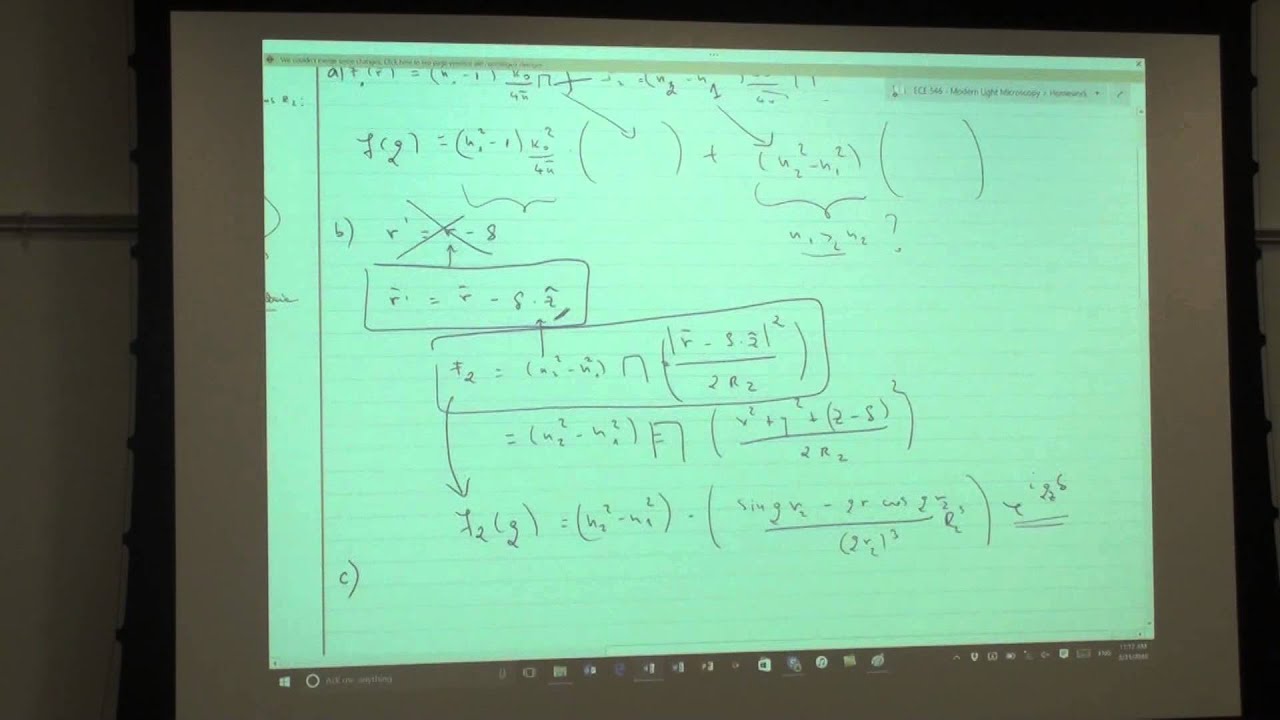 We couldn't merge some changes. Click here to see page versions with unmerged changes.
ECE 546 - Modern Light Microscopy » Homework
os R₂:
a) f₁(r) = (n₁ - 1) k₀/4π Π = (n₂ - n₁)
f(q) = (n₁² - 1) k₀²/4π · ( ) + (n₂² - n₁²) ( )
n₁ > n₂ ?
b) r' = r - δ
r̄' = r̄ - δ · ẑ
F₂ = (n₂² - n₁²) Π ( |r̄ - δ · ẑ|² / 2R₂ )
= (n₂² - n₁²) Π ( x² + y² + (z - δ)² / 2R₂ )
F₂(q) = (n₂² - n₁²) · ( sin q r₂ - q r cos q r₂ / (q r₂)³ R₂³ ) e^{i q_z δ}
c)
Ask me anything
ENG
11:12 AM